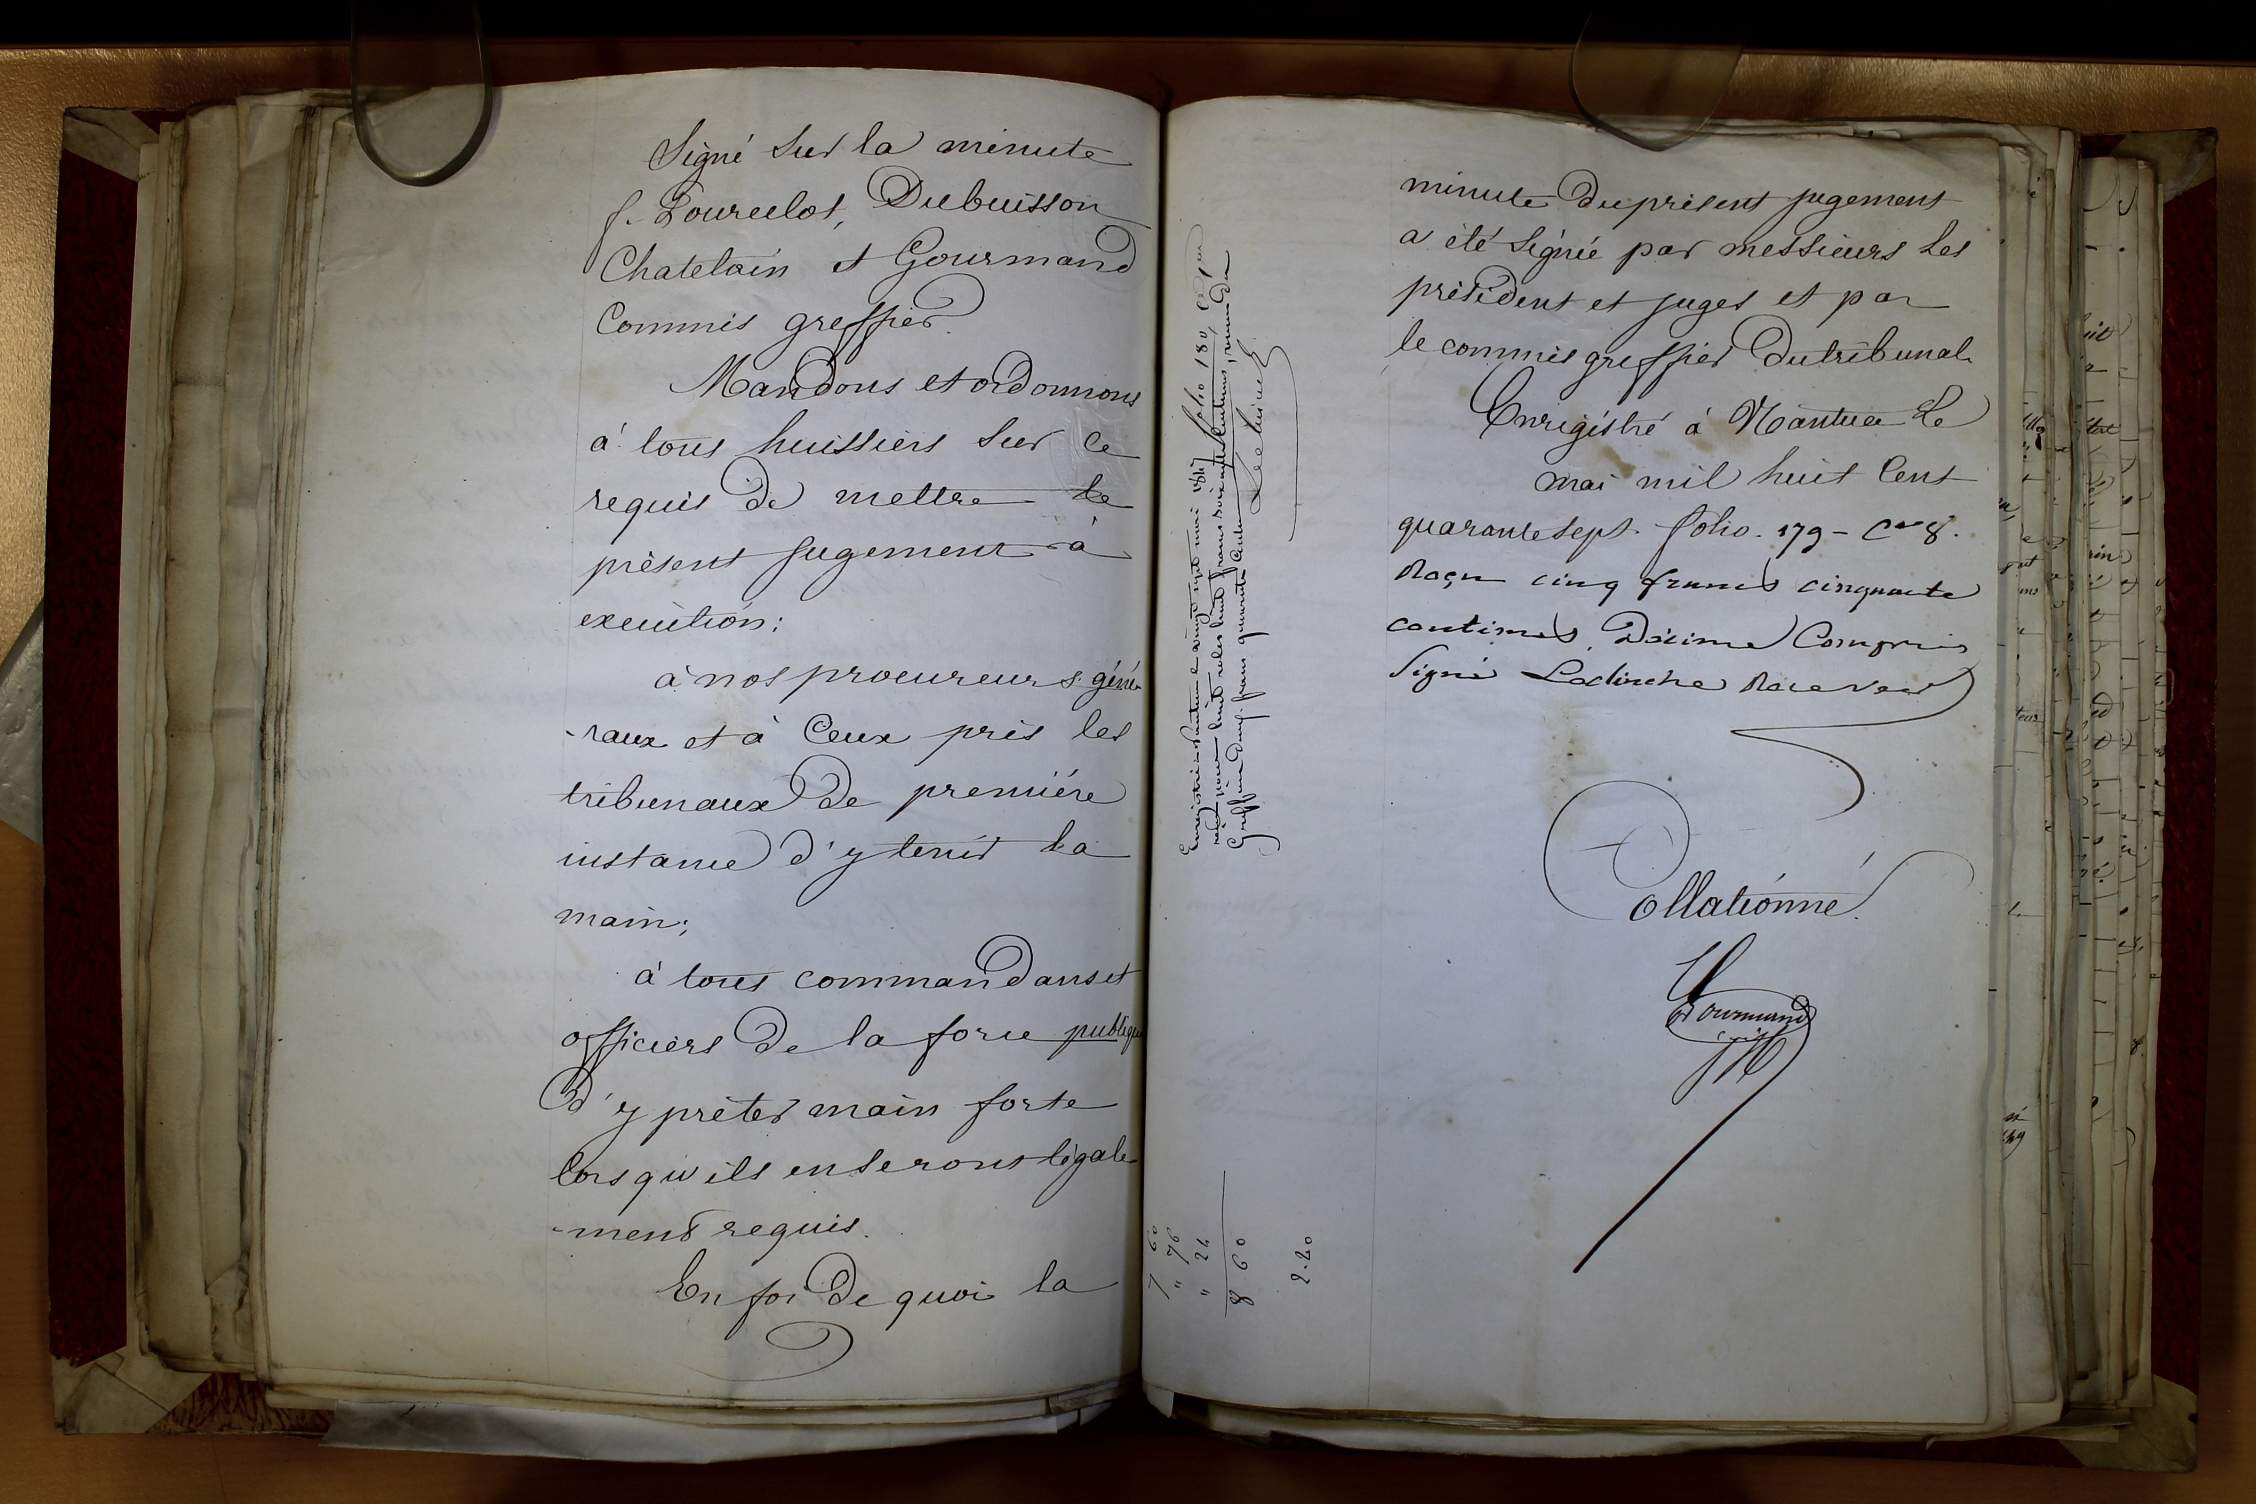 Signé sur la minute
f. Lourcelot, Dubuisson
Chatelain et Gourmand
Commis greffier.
Mandons et ordonnons
à tous huissiers sur ce
requis de mettre le
présent jugement à
exécution;
à nos procureurs géné-
-raux et à Ceux près les
tribunaux de première
instance d'y tenir la
main;
à tous commandans et
officiers de la force publique
d'y prêter main forte
lorsqu'ils en seront légale-
-ment requis.
En foi de quoi la
minute du présent jugement
a été signée par messieurs les
président et juges et par
le commis greffier du tribunal.
Enrigistré à Nantua le
mai mil huit Cent
quarante sept. folio. 179 - Cse 8.
Reçu cinq francs cinquante
centimes, Décime Compris
Signé Receveur
Collationné.
Gourmand
Enregistré à Nantua le vingt sept mai 1847 folio 180
reçu pour huit roles huit francs soixante centimes, remise du
Greffier deux francs quarante centimes
7 60
" 76
" 24
8 60
2.40